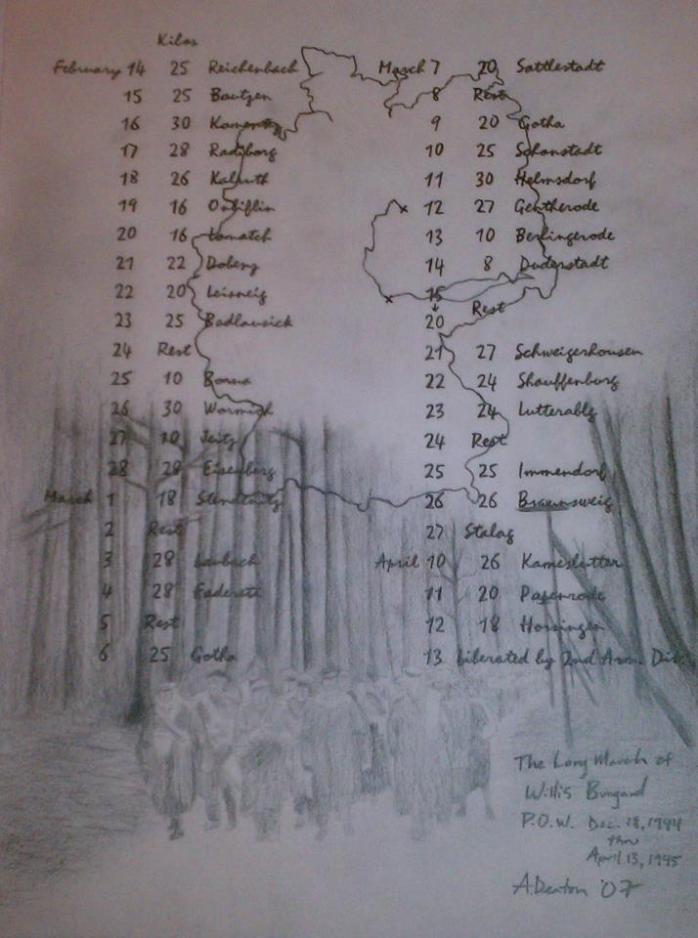 Kilos
February 14 25 Reichenbach
15 25 Bautzen
16 30 Kamentz
17 28 Radiborg
18 26 Kalnuth
19 16
20 16 Lomatch
21 22 Doberg
22 20 Leisneig
23 25 Badlausick
24 Rest
25 10 Borna
26 30
27 10 Zeitz
28 28 Eisenberg
March 1 18
2 Rest
3 28
4 28
5 Rest
6 25 Gotha
March 7 20 Sattlestadt
8 Rest
9 20 Gotha
10 25 Schonstadt
11 30 Helmsdorf
12 27 Gentherode
13 10 Berlingerode
14 8 Duderstadt
15
↓ Rest
20
21 27 Schweigerhousen
22 24 Shauffenburg
23 24 Lutterably
24 Rest
25 25 Immendorf
26 26 Braunsweig
27 Stalag
April 10 26 Kameslutter
11 20 Papenrode
12 18 Horsingen
13 Liberated by 2nd Arm. Div.
The Long March of
Willis Bungard
P.O.W. Dec. 18, 1944
thru
April 13, 1945
A. Deaton '07